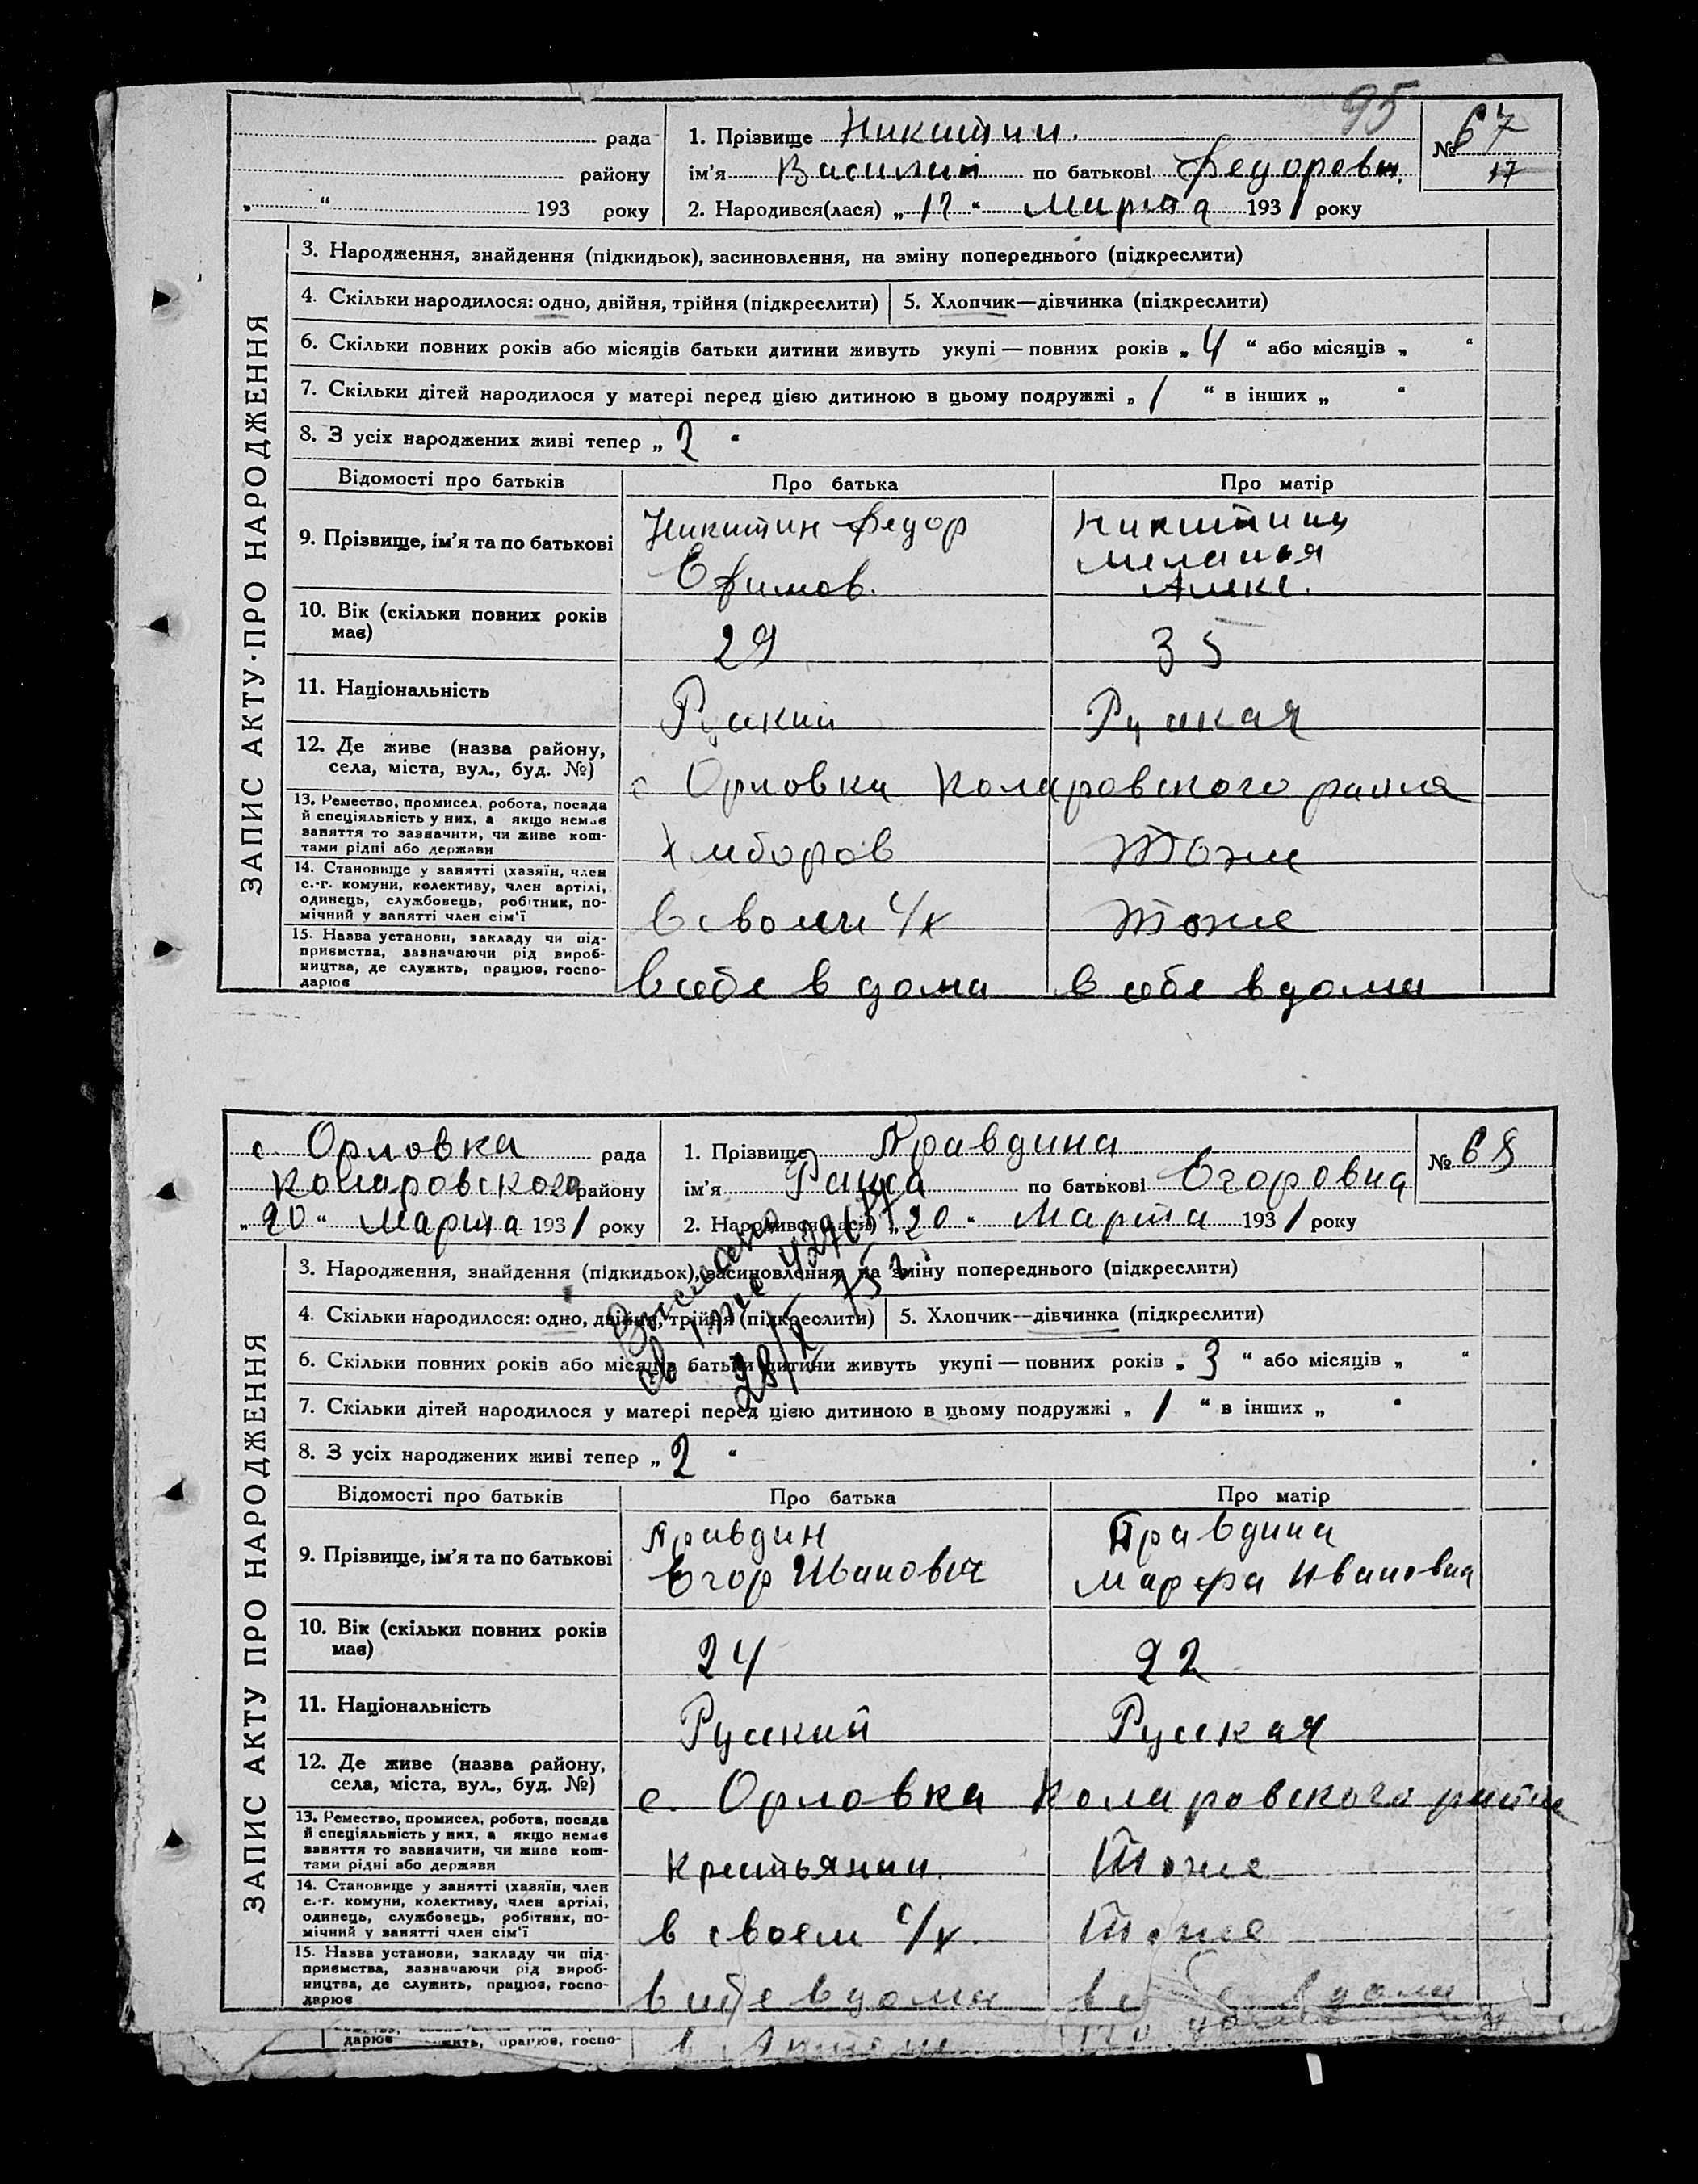 95
рада
району
„ “ 193 року
1. Прізвище Никитин.
ім’я Василий по батькові Федорович.
2. Народився(лася) „17“ Марта 1931 року
№ 67
17
ЗАПИС АКТУ ПРО НАРОДЖЕННЯ
3. Народження, знайдення (підкидьок), засиновлення, на зміну попереднього (підкреслити)
4. Скільки народилося: одно, двійня, трійня (підкреслити) 5. Хлопчик—дівчинка (підкреслити)
6. Скільки повних років або місяців батьки дитини живуть укупі — повних років „4“ або місяців „ “
7. Скільки дітей народилося у матері перед цією дитиною в цьому подружжі „1“ в інших „ “
8. З усіх народжених живі тепер „2“
Відомості про батьків Про батька Про матір
9. Прізвище, ім’я та по батькові
Никитин Федор
Ефимов.
Никитина
Мелания
Алекс.
10. Вік (скільки повних років
має)
29 35
11. Національність
Руский Руская
12. Де живе (назва району,
села, міста, вул., буд. №)
с Орловка Коларовского района
13. Ремество, промисел, робота, посада
й спеціяльність у них, а якщо немає
заняття то зазначити, чи живе кош-
тами рідні або держави
Хлибороб Тоже
14. Становище у занятті (хазяїн, член
с.-г. комуни, колективу, член артілі,
одинець, службовець, робітник, по-
мічний у занятті член сім’ї
В своем с/х Тоже
15. Назва установи, закладу чи під-
приємства, зазначаючи рід вироб-
ництва, де служить, працює, госпо-
дарює
В себе в дома В себе в дома
с. Орловка рада
Коларовского району
„20“ Марта 1931 року
1. Прізвище Правдина
ім’я Раиса по батькові Егоровна
2. Народився(лася) „20“ Марта 1931 року
№ 68
ЗАПИС АКТУ ПРО НАРОДЖЕННЯ
3. Народження, знайдення (підкидьок), засиновлення, на зміну попереднього (підкреслити)
4. Скільки народилося: одно, двійня, трійня (підкреслити) 5. Хлопчик—дівчинка (підкреслити)
6. Скільки повних років або місяців батьки дитини живуть укупі — повних років „3“ або місяців „ “
7. Скільки дітей народилося у матері перед цією дитиною в цьому подружжі „1“ в інших „ “
8. З усіх народжених живі тепер „2“
Відомості про батьків Про батька Про матір
9. Прізвище, ім’я та по батькові
Правдин
Егор Иванович
Правдина
Марфа Ивановна
10. Вік (скільки повних років
має)
24 22
11. Національність
Руский Руская
12. Де живе (назва району,
села, міста, вул., буд. №)
с. Орловка Коларовского района
13. Ремество, промисел, робота, посада
й спеціяльність у них, а якщо немає
заняття то зазначити, чи живе кош-
тами рідні або держави
Крестьянин. Тоже
14. Становище у занятті (хазяїн, член
с.-г. комуни, колективу, член артілі,
одинець, службовець, робітник, по-
мічний у занятті член сім’ї
в своем с/х. Тоже
15. Назва установи, закладу чи під-
приємства, зазначаючи рід вироб-
ництва, де служить, працює, госпо-
дарює
в себе в дома в себе в дома
дарює
працює, госпо-